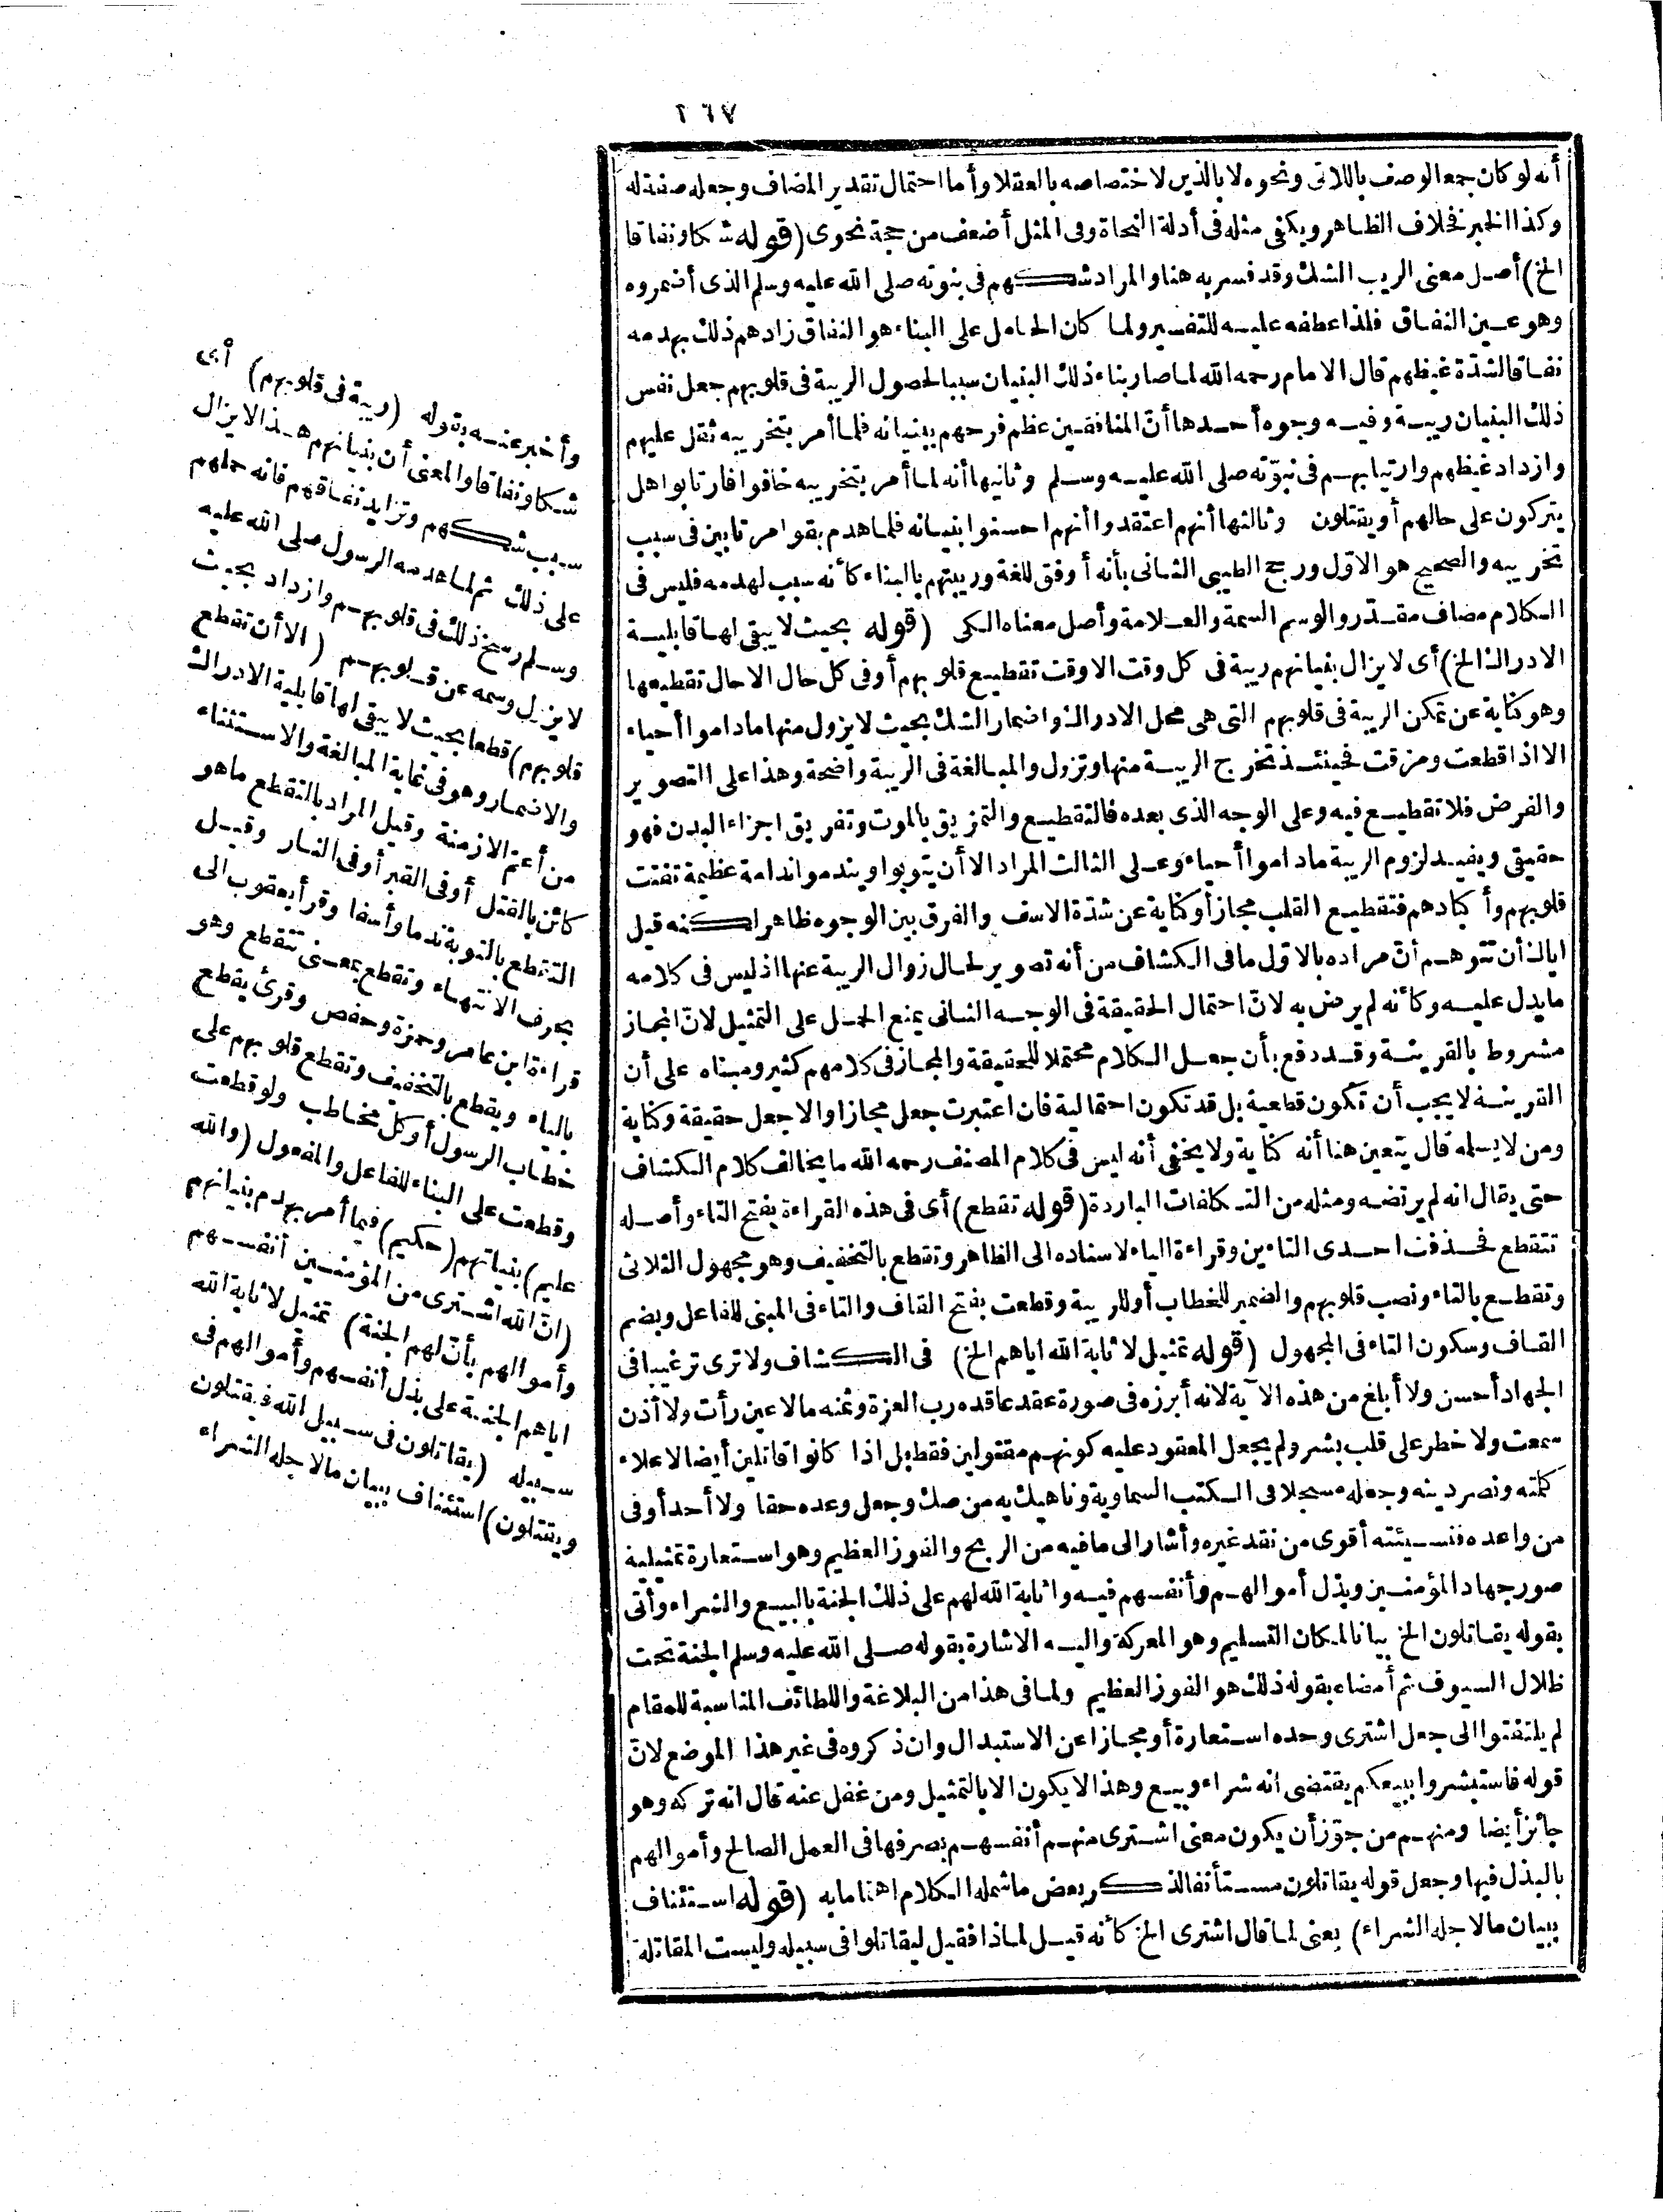 ٣٦٧
أنه لو كان جمعا لوصف باللاتى ونحوه لا بالذين لاختصاصه بالعقلا وأما احتمال تقدير المضاف وجعله صفة له
وكذا الخبر فخلاف الظاهر ويكفى مثله فى أدلة النحاة وفى المثل أضعف من حجة نحوى (قوله شكا ونفاقا
الخ) أصل معنى الريب الشك وقد فسر به هنا والمراد شكهم فى نبوته صلى الله عليه وسلم الذى أضمروه
وهو عين النفاق فلذا عطفه عليه للتفسير ولما كان الحامل على البناء هو النفاق زادهم ذلك بهدمه
نفاقا لشدة غيظهم قال الامام رحمه الله لما صار بناء ذلك البنيان سببا لحصول الريبة فى قلوبهم جعل نفس
ذلك البنيان ريبة وفيه وجوه أحدها أن المنافقين عظم فرحهم ببنيانه فلما أمر بتخريبه ثقل عليهم
وازداد غيظهم وارتيابهم فى نبوّته صلى الله عليه وسلم وثانيها أنه لما أمر بتخريبه خافوا فارتابوا هل
يتركون على حالهم أو يقتلون وثالثها أنهم اعتقدوا أنهم احسنوا بنيانه فلما هدم بقوا مرتابين فى سبب
تخريبه والصحيح هو الاوّل ورجح الطيبى الثانى بأنه أوفق للغة وريبتهم بالبناء كأنه سبب لهدمه فليس فى
الكلام مضاف مقدّر والوسم السمة والعلامة وأصل معناه الكى (قوله بحيث لا يبقى لها قابلية
الادراك الخ) أى لا يزال بنيانهم ريبة فى كل وقت الا وقت تقطيع قلوبهم أو فى كل حال الا حال تقطيعها
وهو كناية عن تمكن الريبة فى قلوبهم التى هى محل الادراك واضمار الشك بحيث لا يزول منها ما داموا أحياء
الا اذا قطعت ومزقت فحينئذ تخرج الريبة منها وتزول والمبالغة فى الريبة واضحة وهذا على التصوير
والفرض فلا تقطيع فيه وعلى الوجه الذى بعده فالتقطيع والتمزيق بالموت وتفريق اجزاء البدن فهو
حقيقى ويفيد لزوم الريبة ما داموا أحياء وعلى الثالث المراد الا أن يتوبوا ويندموا ندامة عظيمة تفتت
قلوبهم وأكبادهم فتقطيع القلب مجاز أو كناية عن شدّة الاسف والفرق بين الوجوه ظاهر لكنه قيل
اياك أن تتوهم أنّ مراده بالاوّل ما فى الكشاف من أنه تصوير لحال زوال الريبة عنها اذ ليس فى كلامه
ما يدل عليه وكأنه لم يرض به لانّ احتمال الحقيقة فى الوجه الثانى يمنع الحمل على التمثيل لانّ المجاز
مشروط بالقرينة وقد دفع بأن جعل الكلام محتملا للحقيقة والمجاز فى كلامهم كثير ومبناه على أن
القرينة لا يجب أن تكون قطعية بل قد تكون احتمالية فان اعتبرت جعل مجازا والا جعل حقيقة وكناية
ومن لا يسلمه قال يتعين هنا أنه كناية ولا يخفى أنه ليس فى كلام المصنف رحمه الله ما يخالف كلام الكشاف
حتى يقال انه لم يرتضه ومثله من التكلفات الباردة (قوله تقطع) أى فى هذه القراءة بفتح التاء وأصله
تتقطع فحذفت احدى التاءين وقراءة الياء لاسناده الى الظاهر وتقطع بالتخفيف وهو مجهول الثلاثى
وتقطع بالتاء ونصب قلوبهم والضمير للخطاب أو للريبة وقطعت بفتح القاف والتاء فى المبنى للفاعل وبضم
القاف وسكون التاء فى المجهول (قوله تمثيل لاثابة الله اياهم الخ) فى الكشاف ولا ترى ترغيبا فى
الجهاد أحسن ولا أبلغ من هذه الآية لانه أبرزه فى صورة عقد عاقده رب العزة وثمنه ما لا عين رأت ولا أذن
سمعت ولا خطر على قلب بشر ولم يجعل المعقود عليه كونهم مقتولين فقط بل اذا كانوا قاتلين أيضا لاعلاء
كلمته ونصر دينه وجعله مسجلا فى الكتب السماوية وناهيك به من صك وجعل وعده حقا ولا أحد أوفى
من واعده فنسيئته أقوى من نقد غيره وأشار الى ما فيه من الربح والفوز العظيم وهو استعارة تمثيلية
صور جهاد المؤمنين وبذل أموالهم وأنفسهم فيه واثابة الله لهم على ذلك الجنة بالبيع والشراء وأتى
بقوله يقاتلون الخ بيانا لمكان التسليم وهو المعركة واليه الاشارة بقوله صلى الله عليه وسلم الجنة تحت
ظلال السيوف ثم أمضاه بقوله ذلك هو الفوز العظيم ولما فى هذا من البلاغة واللطائف المناسبة للمقام
لم يلتفتوا الى جعل اشترى وحده استعارة أو مجازا عن الاستبدال وان ذكروه فى غير هذا الموضع لانّ
قوله فاستبشروا ببيعكم يقتضى انه شراء وبيع وهذا لا يكون الا بالتمثيل ومن غفل عنه قال انه تركه وهو
جائز أيضا ومنهم من جوّز أن يكون معنى اشترى منهم أنفسهم بصرفها فى العمل الصالح وأموالهم
بالبذل فيها وجعل قوله يقاتلون مستأنفا لذكر بعض ما شمله الكلام اهتماما به (قوله استئناف
ببيان ما لاجله الشراء) يعنى لما قال اشترى الخ كأنه قيل لماذا فقيل ليقاتلوا فى سبيله وليست المقاتلة
وأخبر عنه بقوله (ريبة فى قلوبهم) أى
شكا ونفاقا والمعنى أن بنيانهم هذا لا يزال
سبب شكهم وتزايد نفاقهم فانه حملهم
على ذلك ثم لما هدمه الرسول صلى الله عليه
وسلم رسخ ذلك فى قلوبهم وازداد بحيث
لا يزول وسمه عن قلوبهم (الا أن تقطع
قلوبهم) قطعا بحيث لا يبقى لها قابلية الادراك
والاضمار وهو فى غاية المبالغة والاستثناء
من أعمّ الازمنة وقيل المراد بالتقطع ما هو
كائن بالقتل أو فى القبر أو فى النار وقيل
التقطع بالتوبة ندما وأسفا وقرأ يعقوب الى
بحرف الانتهاء وتقطع بمعنى تتقطع وهو
قراءة ابن عامر وحمزة وحفص وقرئ يقطع
بالياء ويقطع بالتخفيف وتقطع قلوبهم على
خطاب الرسول أو كل مخاطب ولو قطعت
وقطعت على البناء للفاعل والمفعول (والله
عليم) بنياتهم (حكيم) فيما أمر بهدم بنيانهم
(انّ الله اشترى من المؤمنين أنفسهم
وأموالهم بأنّ لهم الجنة) تمثيل لاثابة الله
اياهم الجنة على بذل أنفسهم وأموالهم فى
سبيله (يقاتلون فى سبيل الله فيقتلون
ويقتلون) استئناف ببيان ما لاجله الشراء